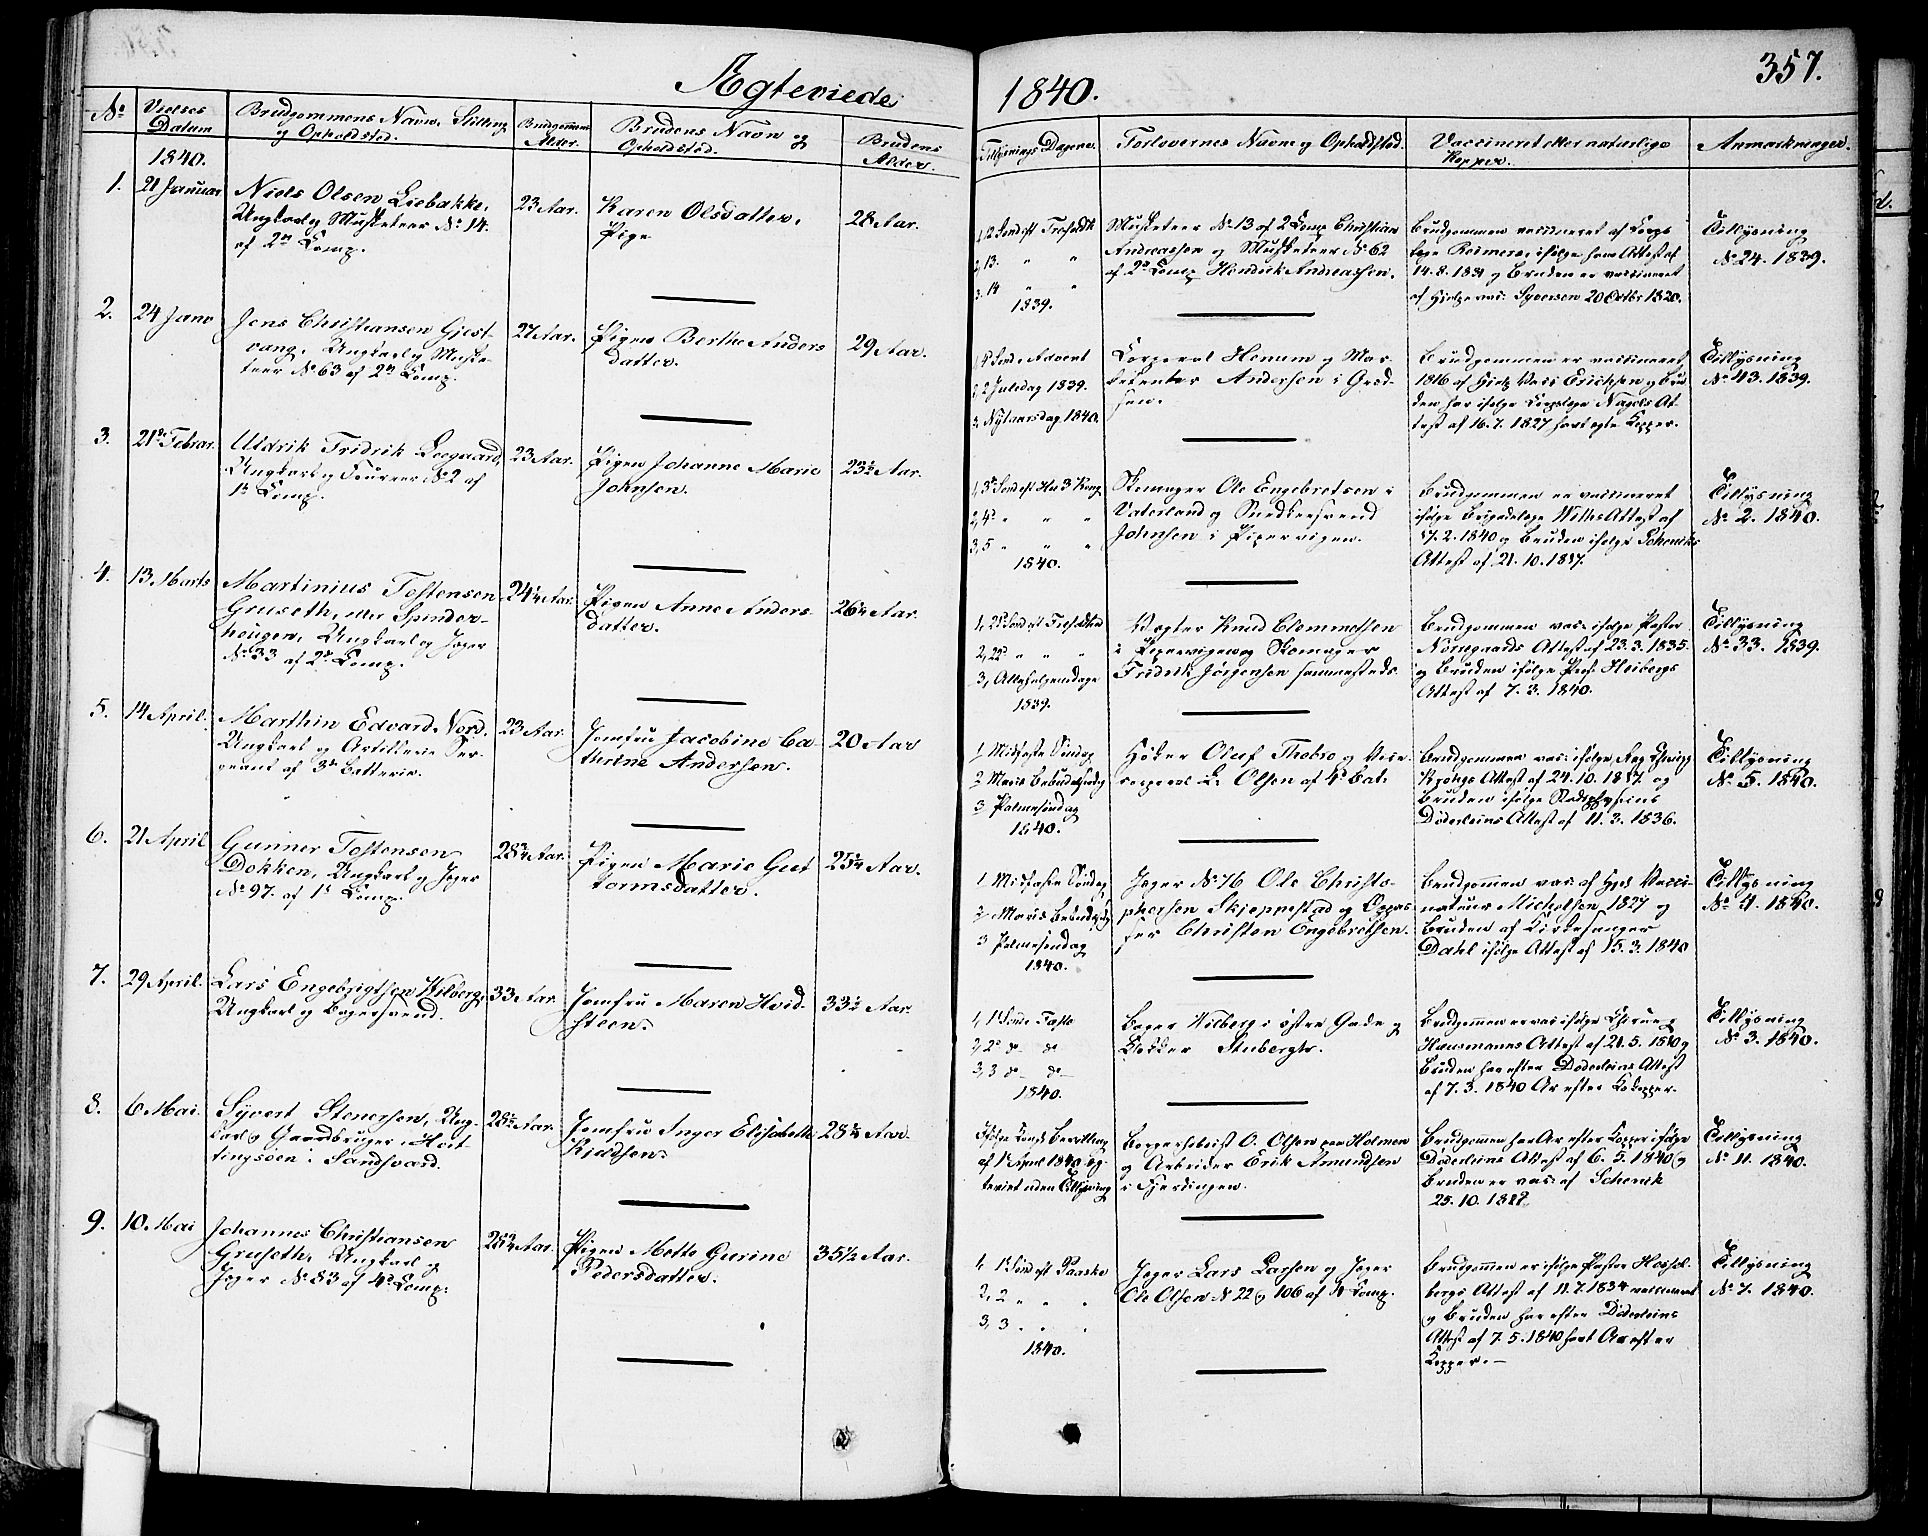 Ægteviede
1840.
357.
No
Vielses
Datum
Brudgommens Navn, Stilling
og Opholdsted.
Brudgommens
Alder.
Brudens Navn og
Opholdsted.
Brudens
Alder.
Tillysnings Dagene.
Forlovernes Navne og Opholdsted.
Vaccineret eller naturlige
Kopper.
Anmærkninger.
1840.
1.
21 Januar
Niels Olsen Liebakke,
Ungkarl og Musketeer No 14.
af 2n Comp.
23 Aar.
Karen Olsdatter,
Pige
28 Aar.
1, 12 Sond. eft. Trefoldh
2, 13. " "
3. 14 " "
1839.
Musketeer No 13 af 2 Comp Christian
Andreassen og Musketeer No 62
af 2n Comp Hendrik Andreassen.
Brudgommen vaccineret af Corps
læge ifølge hans Attest af
14.8.1831 og Bruden er vaccineret
af Hjelpevac. Syversen 20 Octbr 1820.
Tillysning
No 24. 1839.
2.
24 Janr
Jens Christiansen Gjest-
vang, Ungkarl og Muske-
teer No 63 af 2n Comp.
27 Aar.
Pigen Berthe Anders
datter.
29 Aar.
1, 4 Sond. Advent
2, 2 Juledag 1839.
3, Nytaarsdag 1840.
Corporal Honum og Mar-
ketenter Andersen i Grød-
sen.
Brudgommen er vaccineret
1816 af Hjelp Vacc Erichsen og Bru
den har ifølge Corpslæge Nagels At-
test af 16.7.1827 havt ægte Kopper.
Tillysning
No 43. 1839.
3.
21de Februar.
Uldrik Fridrik Leegaard,
Ungkarl og Foureer No 2 af
1e Comp.
23 Aar.
Pigen Johanne Marie
Johnsen.
23½ Aar.
1, 3e Sond eft Hel 3 Kong
2, 4e " " "
3, 5 " " "
1840.
Skomager Ole Engebretsen i
Vaterland og Snedkersvend
Johnsen i Pipervigen.
Brudgommen er vaccineret
ifølge Brigadelæge Withs Attest af
17.2.1840 og Bruden ifølge Scheniks
Attest af 21.10.1817.
Tillysning
No 2. 1840.
4.
13 Marts
Martinius Tostensen
Gruseth, eller Spinder-
haugen, Ungkarl og Jæger
No 33 af 2n Comp.
24¼ Aar.
Pigen Anne Anders-
datter.
26¼ Aar.
1, 21e Sond eft Trefoldhd
2, 22e " " "
3, Allehelgensdage
1839.
Vægter Knud Clemmetsen
i Pipervigen og Skomager
Fridrik Jørgensen sammesteds.
Brudgommen vac. ifølge Pastor
Nørregaards Attest af 23.3.1835
og Bruden ifølge Prof. Heibergs
Attest af 7.3.1840.
Tillysning
No 33. 1839.
5.
14 April.
Marthin Edvard Nord,
Ungkarl og Artillerie Ser-
geant af 3die Batterie.
23 Aar.
Jomfru Jacobine Ca-
thrine Andersen.
20 Aar
1 Midfaste Søndag
2 Mariæ Bebudelsesdag
3 Palmesøndag
1840.
Høker Oluf Thobro og Vice
corporal L. Olsen af 4e Bat.
Brudgommen vac. ifølge
Attest af 24.10.1817 og
Bruden ifølge Stadsphysicus
Døderleins Attest af 11.3.1836.
Tillysning
No 5. 1840.
6.
21 April
Gunner Tostensen
Dokken, Ungkarl og Jæger
No 97. af 1e Comp.
28¾ Aar.
Pigen Marie Gut
tormsdatter.
25¾ Aar.
1 Midfaste Søndag
2 Mariæ Bebudelsesdg
3 Palmesøndag
1840.
Jæger No 76 Ole Christo-
phersen Skjeppestad og Oppas
ser Christen Engebretsen.
Brudgommen vac. af Hjelp Vacci-
nateur Michelsen 1827 og
Bruden af Kirkesanger
Dahl ifølge Attest af 15.3.1840
Tillysning
No 4. 1840.
7.
29 April.
Lars Engebrigtsen Wilberg,
Ungkarl og Bagersvend.
33 Aar.
Jomfru Maren Hvid-
steen.
33½ Aar.
1, 1e Sond i Faste
2, 2e do do
3, 3 do do
1840.
Bager Wilberg i østre Gade og
Klokker Stubergtr.
Brudgommen er vac. ifølge Chirurg
Hausmanns Attest af 21.5.1810 og
Bruden har efter Døderleins Attest
af 7.3.1840 Ar efter Kokopper.
Tillysning
No 3. 1840.
8.
6 Mai.
Syvert Stenersen, Ung-
karl og Gaardbruger Hot-
tingsøen i Sandsværd.
28½ Aar.
Jomfru Inger Elisabeth
Kiddsen.
28¾ Aar.
Ifølge Kongl Bevilling
af 1e April 1840 æg-
teviet uden Tillysning
Borgerskabist O. Olsen paa Holmen
og Arbeider Erik Amundsen
i Fjerdingen.
Brudgommen har Ar efter Kopper ifølge
Døderleins Attest af 6.5.1840 og
Bruden er vac. af Schenik
25.10.1817.
Tillysning
No 11. 1840.
9.
10 Mai
Johannes Christiansen
Gruseth, Ungkarl og
Jæger No 83 af 4e Comp.
28¾ Aar.
Pigen Mette Gurine
Pedersdatter.
35½ Aar.
1, 1e Sond eft Paaske
2, 2 " " "
3, 3 " " "
1840.
Jæger Lars Larsen og Jæger
Ole Olsen N 22 og 106 af 4 Comp.
Brudgommen er ifølge Pastor Hassel-
bergs Attest af 11.7.1834 vaccineret
og Bruden har efter Døderleins
Attest af 7.5.1840 havt Ar efter
Kopper.
Tillysning
No 7. 1840.